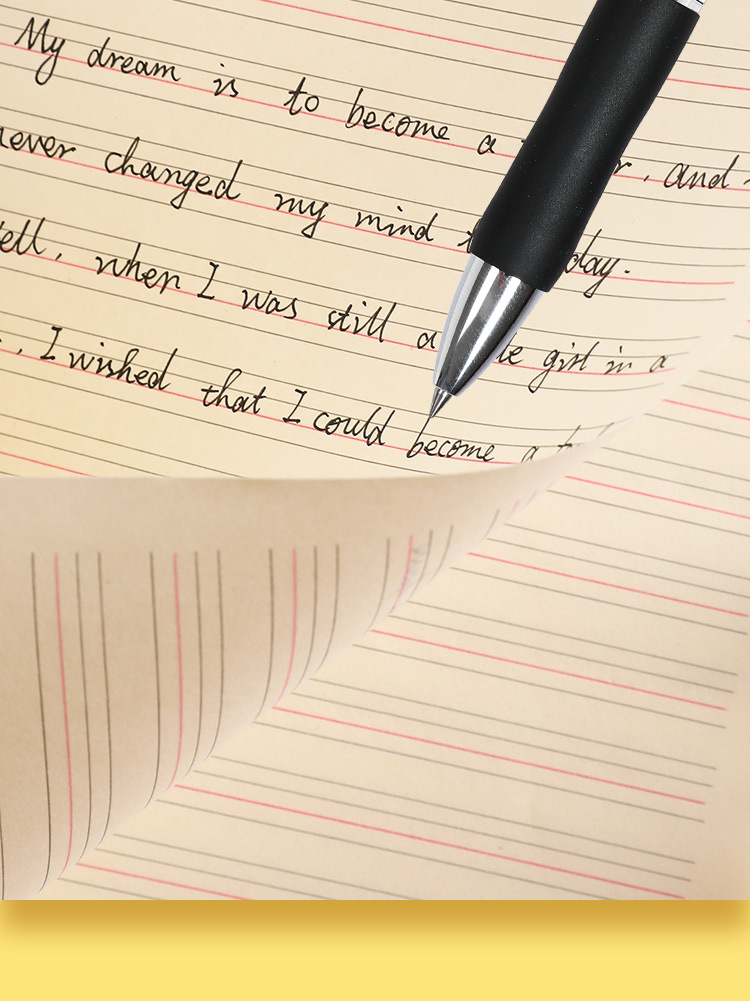 My dream is to become a r, and
never changed my mind day.
ell, when I was still a le girl in a
, I wished that I could become a